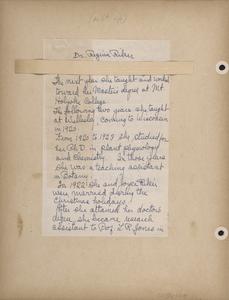 Dr. Regina Riker
The next year she taught and worked
toward the Master's degree at Mt.
Holyoke College.
The following two years she taught
at Wellesley coming to Wisconsin
in 1920.
From 1920 to 1923 she studied for
her Ph.D. in plant physiology
and chemistry. In those years
she was a teaching assistant
in Botany.
In 1922 she and Joyce Riker
were married during the
Christmas holidays.
After she attained her doctor's
degree she became research
assistant to Prof. L R Jones in